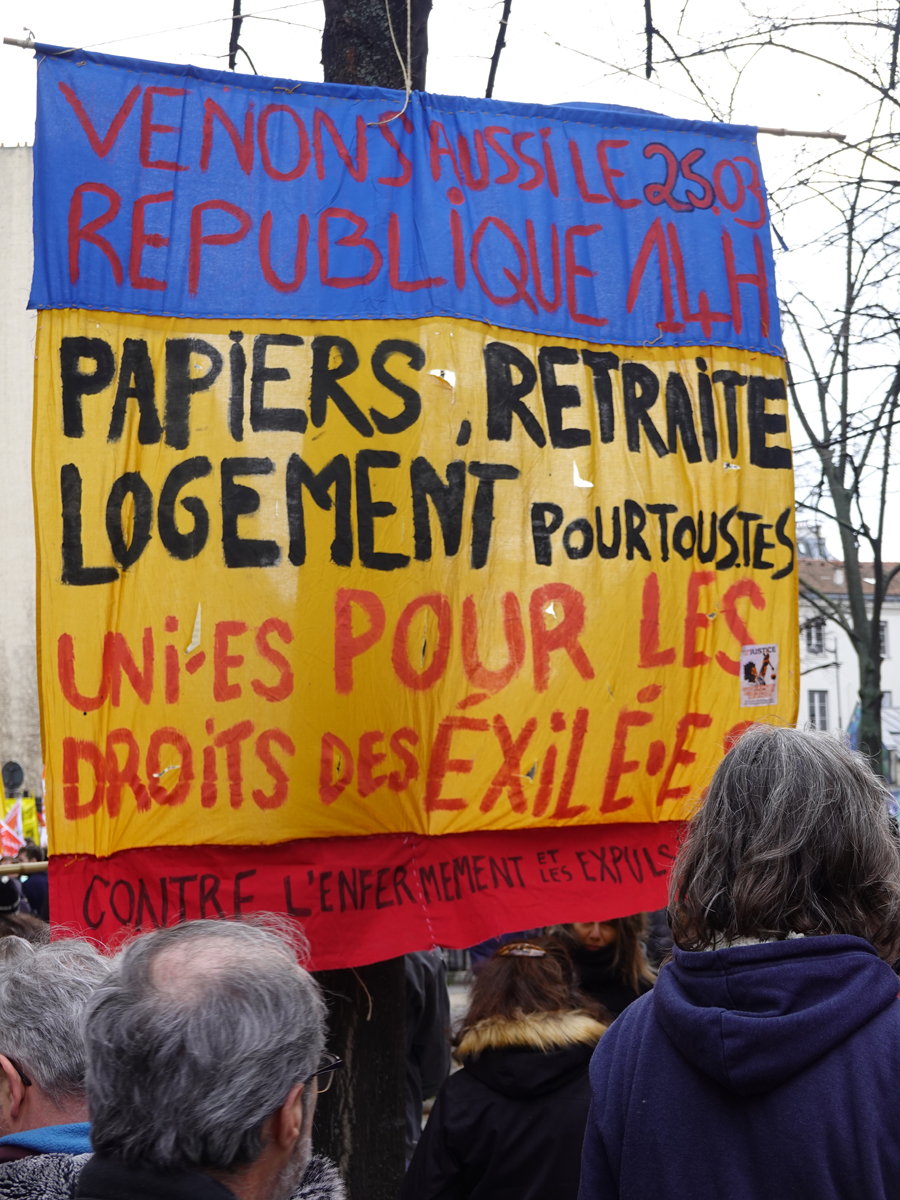 VENONS AUSSI LE 25.03
REPUBLIQUE 14H
PAPIERS, RETRAITE
LOGEMENT POUR TOUS.TES
UNi-ES POUR LES
DROITS DES ÉXILÉ•E
CONTRE L'ENFERMEMENT ET LES EXPULS
JUSTICE